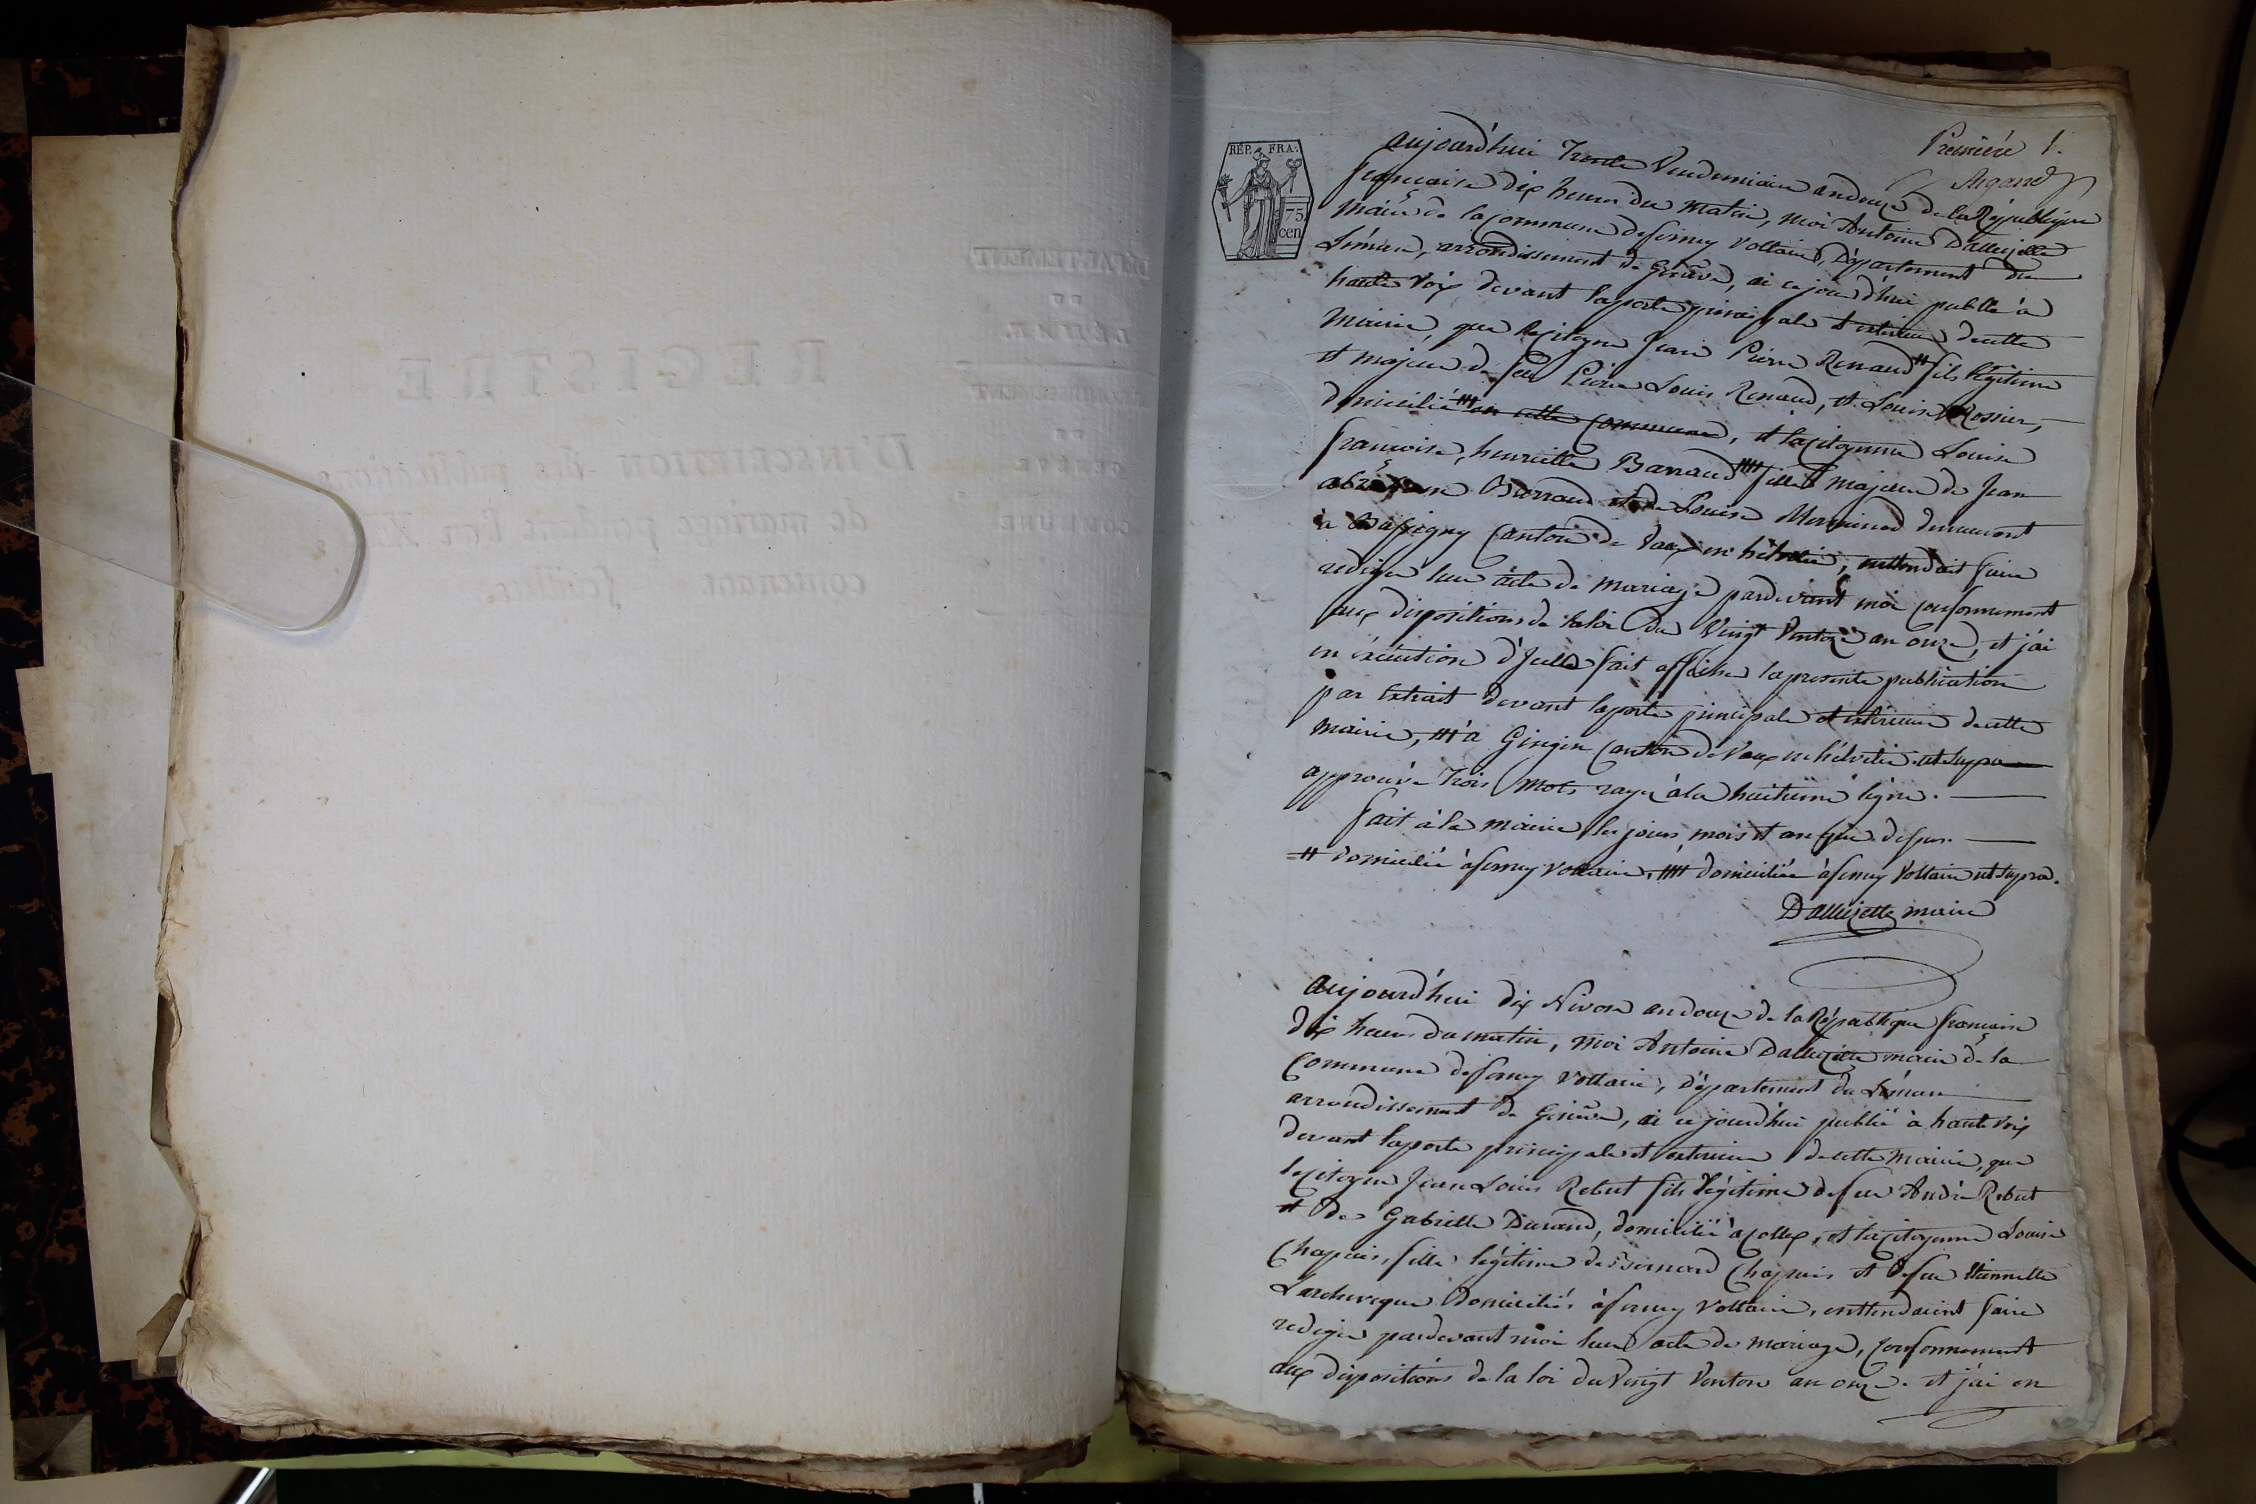 DÉPARTEMENT
DU
LÉMAN.
ARRONDISSEMENT
DE
GENÈVE
COMMUNE
REGISTRE
D'INSCRIPTION des publications
de mariage pendant l'an XII
contenant feuillets.
Première 1.
RÉP. FRA.
75
cen
aujourd'hui Trente Vendemiaire an douze de la République
françaice dix heures du matin, moi Antoine Dalluzette
maire de la Commune de ferney Voltaire, Département du
Léman, arrondissement de Genève, ai cejourd'hui publié à
haute Voix devant la porte principale et exterieure de cette
Mairie, que le Citoyen Jean Pierre Renaud # fils légitime
et majeur de feu Pierre Louis Renaud, et Louise Rossier,
domicilié en cette Commune, et la Citoyenne Louise
francoise, henriette Barraud fille majeure de Jean
abram Barraud et de Louise Monninod demeurant
à Canton de Vaux en helvetie, entendoit faire
redigér leur acte de mariage pardevant moi conformement
aux dispositions de la loi du Vingt Ventoze an onze, et j'ai
en éxécution d'Icelle fait afficher la presente publication
par Extrait devant la porte principale et extérieure de cette
mairie, à Gingin Canton de Vaux en hélvetie ut supra
approuvé trois mots rayé à la huitième ligne.
fait à la mairie les jours, mois et an que dessus.
# domicilié à ferney Voltaire, domiciliée à ferney Voltaire ut supra.
Dalluzette maire
aujourd'hui dix Nivose an douze de la République française
dix heures du matin, moi Antoine Dalluzette maire de la
Commune de ferney Voltaire, Département du Léman
arrondissement de Genève, ai cejourd'hui publié à haute voix
devant la porte principale et exterieure de cette Mairie, que
le Citoyen Jean Louis Rebut fils légitime de feu André Rebut
et de Gabrielle Durand, domicilié à Collex, et la Citoyenne Louise
Chapuis, fille légitime de Bernard Chapuis et de feu Etiennette
Larcheveque domiciliés à ferney Voltaire, enttendoient faire
redigér pardevant moi leur acte de mariage, Conformement
aux dispositions de la loi du Vingt Ventose an onze. et j'ai en